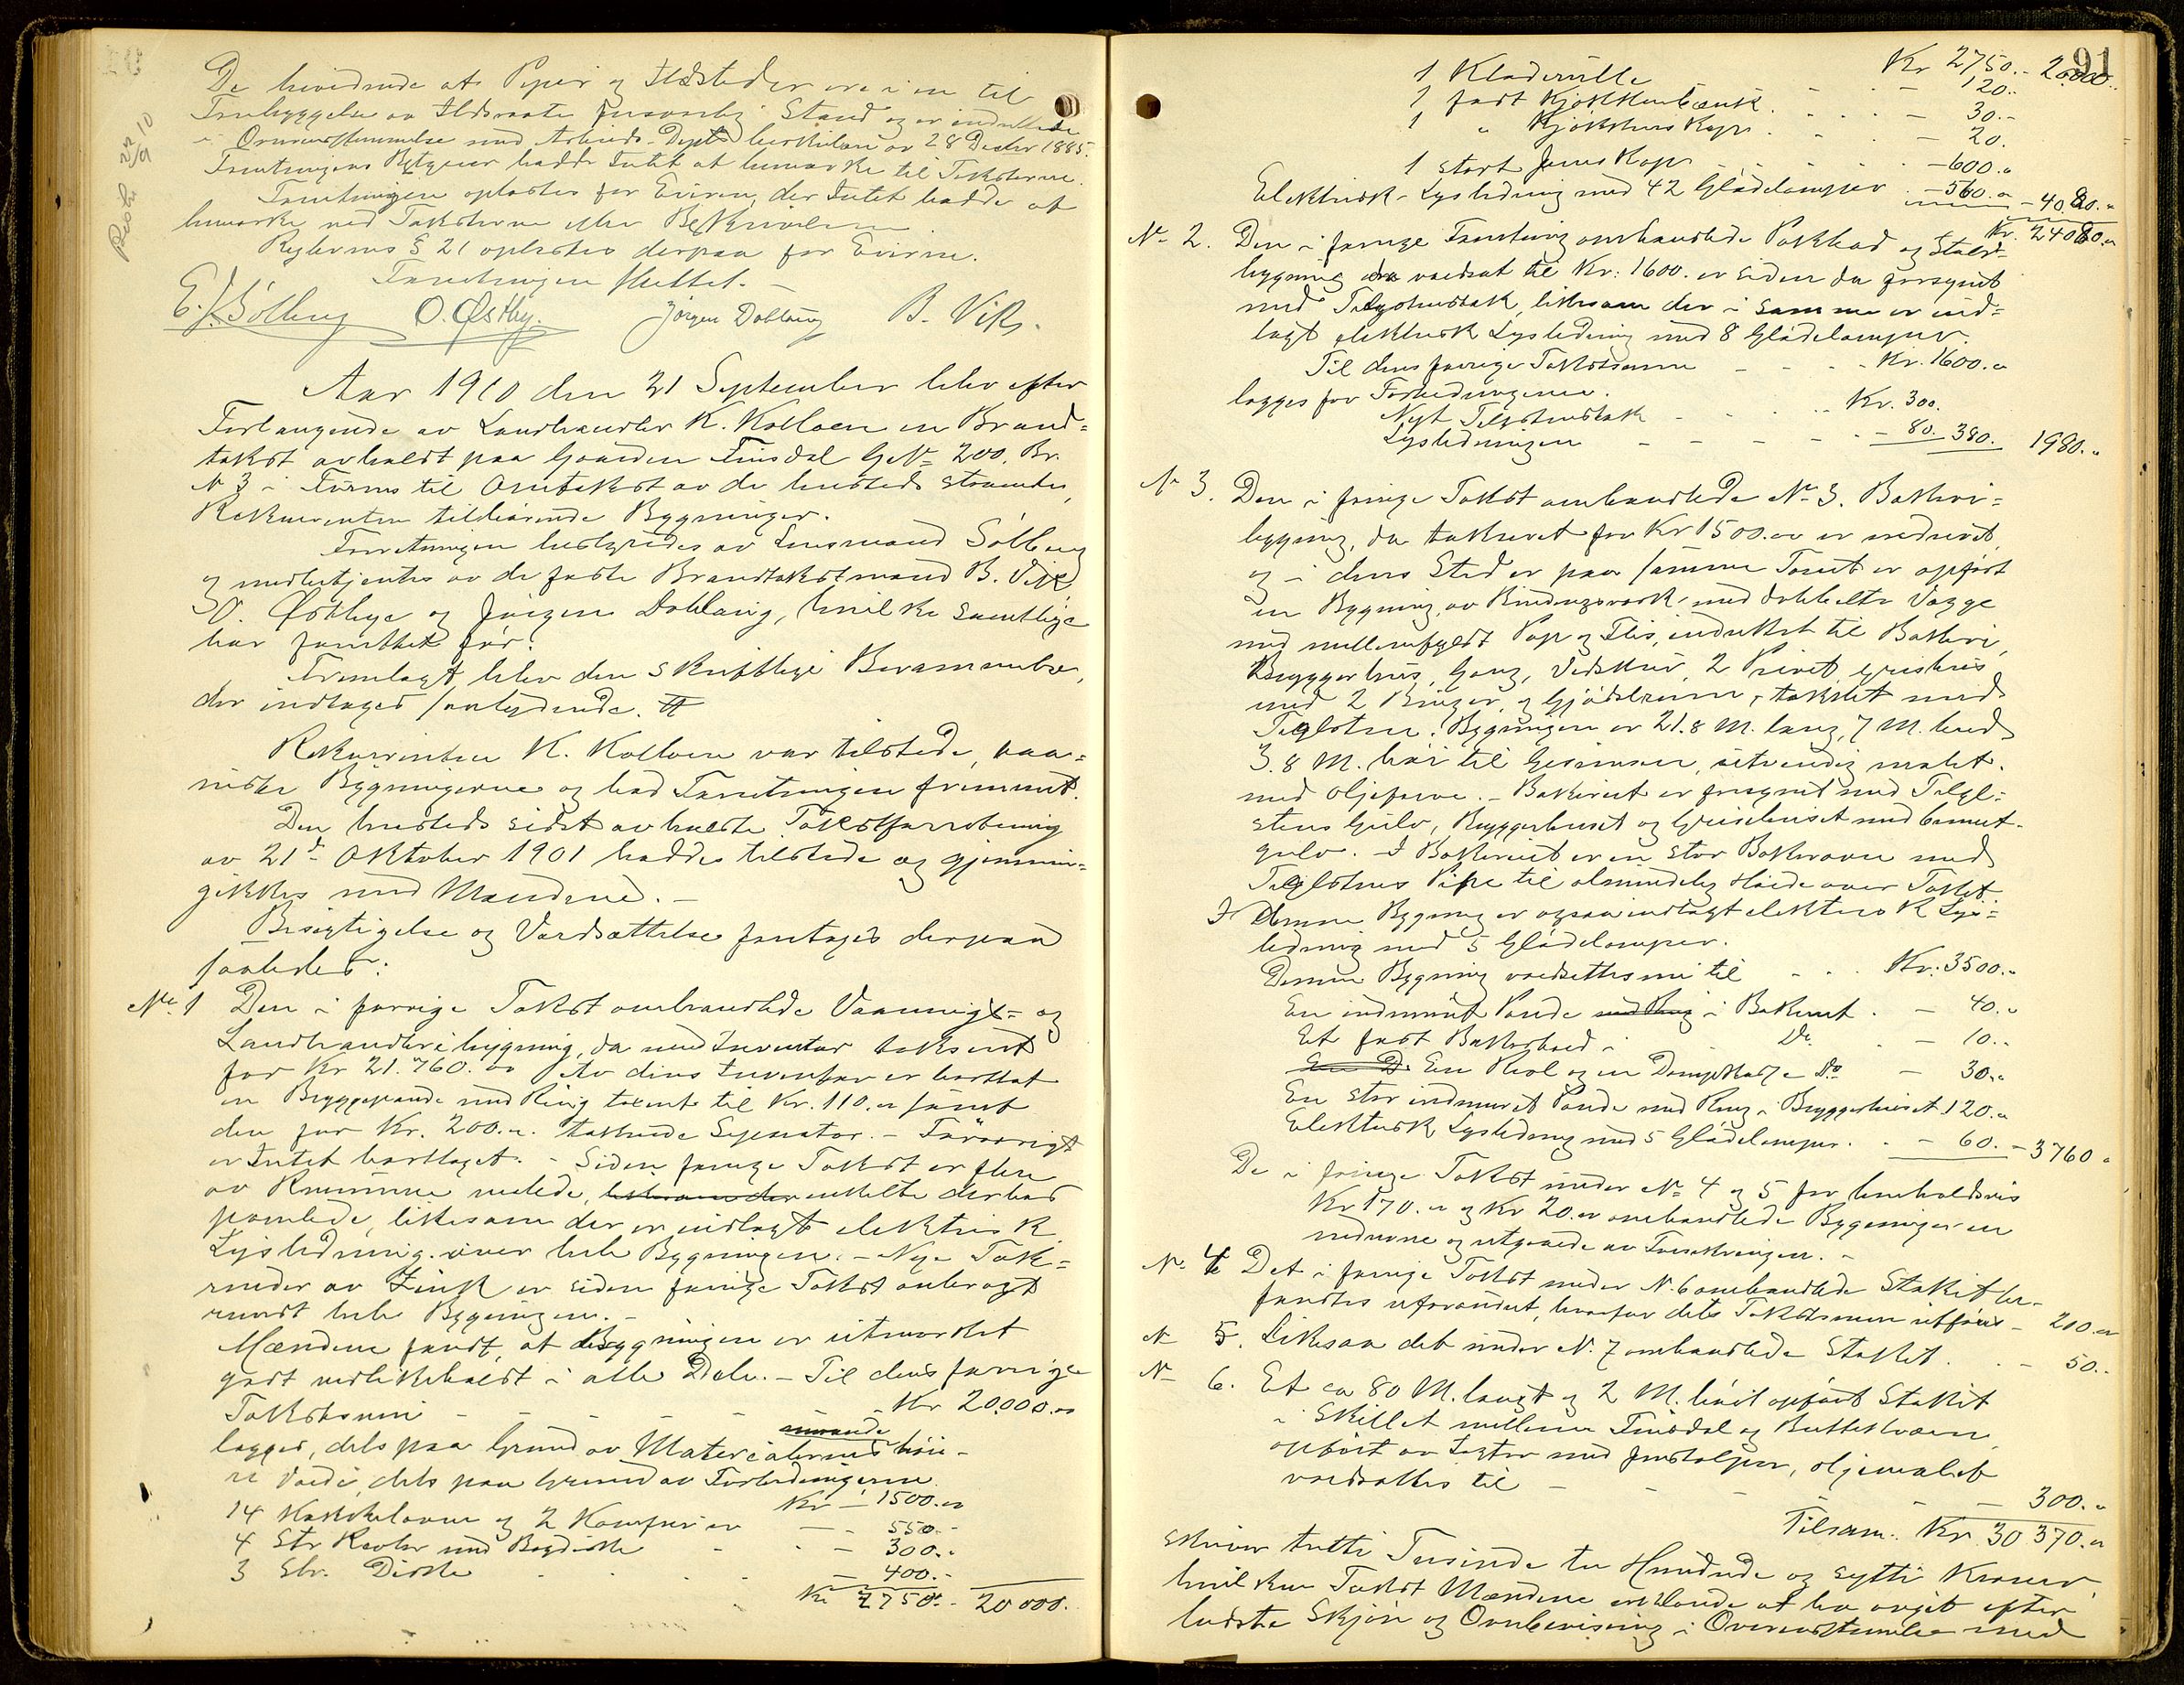 91
De hevdende at Piper og Ildsteder ere i en til
Forebyggelse av Ildsvaade forsvarlig Stand og er indrettede
i Overensstemmelse med Arbeids-Deptets cirkulære av 28 Decbr 1885.
Forretningens Bestyrer hadde Intet at bemærke til Taksterne.
Forretningen oplæstes for Eieren, der Intet hadde at
bemærke ved Taksterne eller Beskrivelsen
Reglernes § 21 oplæstes derpaa for Eieren.
Forretningen sluttet.
E. J. Sølberg O. Østby. Jørgen Dablaug B. Vik.
Aar 1910 den 21 September blev efter
Forlangende av Landhandler K. Kolloen en Brand=
takst avholdt paa Gaarden Finsdal G.No 200. Br.
N 3 i Furnes til Omtakst av de hersteds staaende,
Rekvirenten tilhørende Bygninger.
Forretningen bestyredes av Lensmand Sølberg
og medbetjentes av de faste Brandtakstmænd B. Vik,
O. Østbye og Jørgen Dablaug, hvilke samtlige
har forrettet før.
Fremlagt blev den skriftlige Berammelse,
der indtages saalydende. #
Rekvirenten K. Kolloen var tilstede, paa=
viste Bygningerne og bad Forretningen fremmet.
Den hersteds sidst avholdte Takstforretning
av 21de Oktober 1901 haddes tilstede og gjennem=
gikkes med Mændene.
Besigtigelse og Værdsættelse foretages derpaa
saaledes:
No. 1 Den i forrige Takst omhandlede Vaanings= og
Landhandleribygning, da med Inventar taksert
for Kr 21.760.00 Av dens Inventar er borttat
en Bryggepande med Ring taxert til Kr. 110.00 samt
den for Kr. 200.00 takserede Separator. - Forøvrigt
er Intet borttaget. - Siden forrige Takst er flere
av Rummene malede, enkelte derhos
panelede, likesom der er indlagt elektrisk
Lysledning over hele Bygningen. - Nye Tak=
render av Zink er siden forrige Takst anbragt
rundt hele Bygningen.
Mændene fandt, at Bygningen er utmærket
godt vedlikeholdt i alle Dele. - Til dens forrige
Takstsum - - - - Kr 20.000.00
lægges, dels paa Grund av Materialernes nuværende høie-
re Værdi, dels paa Grund av Forbedringerne
Kr - 1500.00
14 Kakkelovne og 2 Komfurer - - 550.-
4 Str Reoler med Bagdiske - - 300.-
3 Str. Diske - - - 400.-
Kr 2750.- 20000.
Kr 2750.- 20.000..
1 Klæderulle - 120.-
1 fast Kjøkkenbænk - 30.-
1 " Kjøkkenskap - 20.
1 stort Jernskap - 600.00
Elektrisk Lysledning med 42 Glødelamper - 560.00 - 4080.00
Kr. 24080.00
No 2. Den i forrige Forretning omhandlede Pakbod og Stald-
bygning da værdsat til Kr: 1600. er siden da forsynet
med Teglstenstak, likesom der i samme er ind=
lagt elektrisk Lysledning med 8 Glødelamper.
Til dens forrige Takstsum - - - Kr. 1600.00
lægges for Forbedringerne.
Nyt Teglstenstak - - Kr. 300.
Lysledningen - - - - 80. 380. 1980.00
No 3. Den i forrige Takst omhandlede No 3. Bakeri=
bygning, da taksert for Kr 1500.00 er nedrevet,
og i dens Sted er paa samme Tomt er opført
en Bygning av Bindingsverk med dobbelte Vægge
med mellemfyldt Pap og Flis, indrettet til Bakeri,
Bryggerhus, Gang, Vedskur, 2 Privet, Grisehus
med 2 Binger, og Gjødselrum, taktet med
Teglsten. Bygningen er 21.8 M. lang, 7 M. bred
3.8 M. høi til Gesimsen, utvendig malet
med Oljefarve. - Bakeriet er forsynet med Tegl=
stens Gulv, Bryggerhuset og Grisehuset med Cement-
gulv. I Bakeriet er en stor Bakerovn med
Teglstens Pipe til almindelig Høide over Taket.
I denne Bygning er ogsaa indlagt elektrisk Lys=
ledning med 5 Glødelamper.
Denne Bygning værdsettes nu til - - Kr: 3500.00
En indmuret Pande i Bakeriet - 40.00
Et fast Bakerbord i Do. - 10.-
En Reol og en Dampkasse Do - 30.-
En stor indmuret Pande med Ring i Bryggerhuset 120.00
Elektrisk Lysledning med 5 Glødelamper. - 60.- 3760.
De i forrige Takst under No 4 og 5 for henholdsvis
Kr 170.00 og Kr 20.00 omhandlede Bygninger er
nedrevne og utgaaede av Forsikringen. -
No. 4 Det i forrige Takst under N. 6 omhandlede Stakit be-
fandtes uforandret, hvorfor dets Takstsum utføres - 200.00
N 5. Likesaa det under N. 7 omhandlede Stakit. - 50..
N 6. Et ca 80 M. langt og 2 M. høit opført Stakit
i Skillet mellem Finsdal og Buttekværn
opført av Lægter med Jernstolper, oljemalet
værdsættes til - - - - 300.-
Tilsam. Kr 30370.00
skriver tretti Tusinde tre Hundrede og sytti Kroner
hvilken Takst Mændene erklærede at ha avgit efter
bedste Skjøn og Overbevisning i Overensstemmelse med